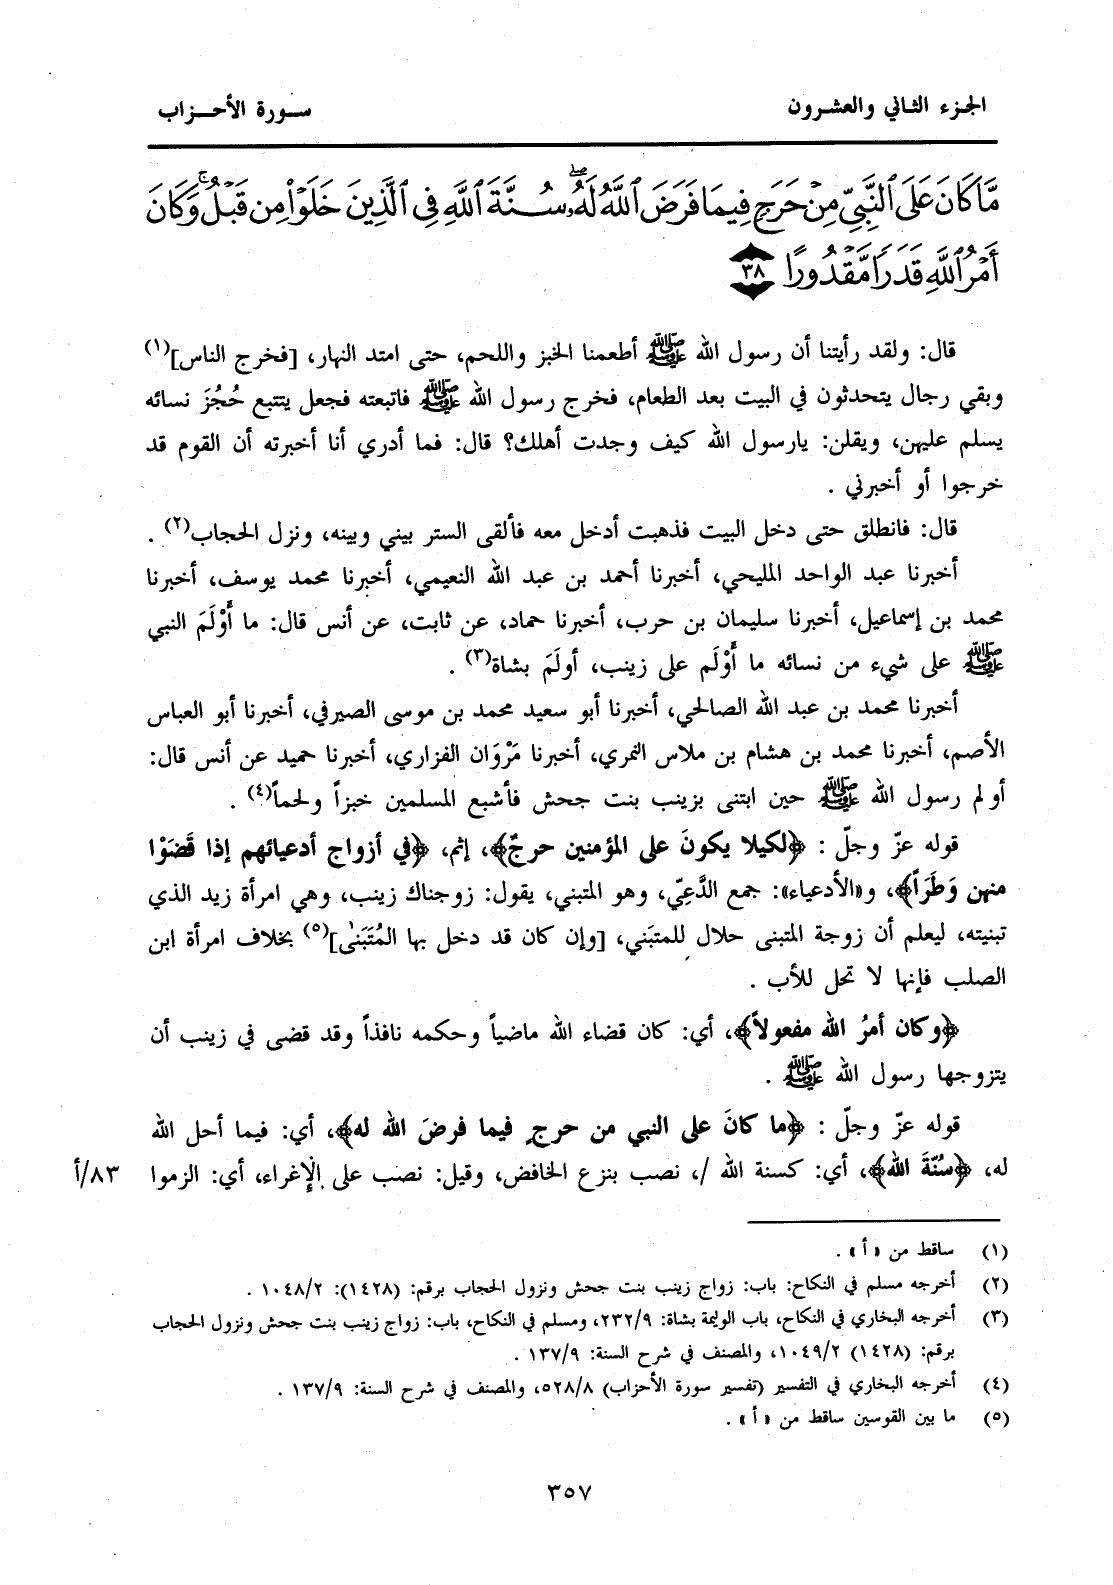 الجزء الثاني والعشرون
سورة الأحزاب
مَّا كَانَ عَلَى ٱلنَّبِيِّ مِنۡ حَرَجٖ فِيمَا فَرَضَ ٱللَّهُ لَهُۥۖ سُنَّةَ ٱللَّهِ فِي ٱلَّذِينَ خَلَوۡاْ مِن قَبۡلُۚ وَكَانَ
أَمۡرُ ٱللَّهِ قَدَرٗا مَّقۡدُورًا ٣٨
قال: ولقد رأيتنا أن رسول الله ﷺ أطعمنا الخبز واللحم، حتى امتد النهار، [فخرج الناس](١)
وبقي رجال يتحدثون في البيت بعد الطعام، فخرج رسول الله ﷺ فاتبعته فجعل يتتبع حُجُزَ نسائه
يسلم عليهن، ويقلن: يارسول الله كيف وجدت أهلك؟ قال: فما أدري أنا أخبرته أن القوم قد
خرجوا أو أخبرني .
قال: فانطلق حتى دخل البيت فذهبت أدخل معه فألقى الستر بيني وبينه، ونزل الحجاب(٢) .
أخبرنا عبد الواحد المليحي، أخبرنا أحمد بن عبد الله النعيمي، أخبرنا محمد يوسف، أخبرنا
محمد بن إسماعيل، أخبرنا سليمان بن حرب، أخبرنا حماد، عن ثابت، عن أنس قال: ما أَوْلَمَ النبي
ﷺ على شيء من نسائه ما أَوْلَم على زينب، أولَمَ بشاة(٣) .
أخبرنا محمد بن عبد الله الصالحي، أخبرنا أبو سعيد محمد بن موسى الصيرفي، أخبرنا أبو العباس
الأصم، أخبرنا محمد بن هشام بن ملاس النمري، أخبرنا مَرْوَان الفزاري، أخبرنا حميد عن أنس قال:
أولم رسول الله ﷺ حين ابتنى بزينب بنت جحش فأشبع المسلمين خبزاً ولحماً(٤) .
قوله عزّ وجلّ : ﴿لكيلا يكونَ على المؤمنين حرجٌ﴾، إثم، ﴿في أزواج أدعيائهم إذا قَضَوْا
منهن وَطَرَاً﴾، و«الأدعياء»: جمع الدَّعِيّ، وهو المتبني، يقول: زوجناك زينب، وهي امرأة زيد الذي
تبنيته، ليعلم أن زوجة المتبنى حلال للمتبَني، [وإن كان قد دخل بها المُتَبَنىٰ](٥) بخلاف امرأة ابن
الصلب فإنها لا تحل للأب .
﴿وكان أمرُ الله مفعولاً﴾، أي: كان قضاء الله ماضياً وحكمه نافذاً وقد قضى في زينب أن
يتزوجها رسول الله ﷺ .
قوله عزّ وجلّ : ﴿ما كانَ على النبي من حرجٍ فيما فرضَ الله له﴾، أي: فيما أحل الله
له، ﴿سُنّةَ الله﴾، أي: كسنة الله /، نصب بنزع الخافض، وقيل: نصب على الإغراء، أي: الزموا ٨٣/أ
(١) ساقط من «أ» .
(٢) أخرجه مسلم في النكاح: باب: زواج زينب بنت جحش ونزول الحجاب برقم: (١٤٢٨): ١٠٤٨/٢ .
(٣) أخرجه البخاري في النكاح، باب الوليمة بشاة: ٢٣٢/٩، ومسلم في النكاح، باب: زواج زينب بنت جحش ونزول الحجاب
برقم: (١٤٢٨) ١٠٤٩/٢، والمصنف في شرح السنة: ١٣٧/٩ .
(٤) أخرجه البخاري في التفسير (تفسير سورة الأحزاب) ٥٢٨/٨، والمصنف في شرح السنة: ١٣٧/٩ .
(٥) ما بين القوسين ساقط من «أ» .
٣٥٧